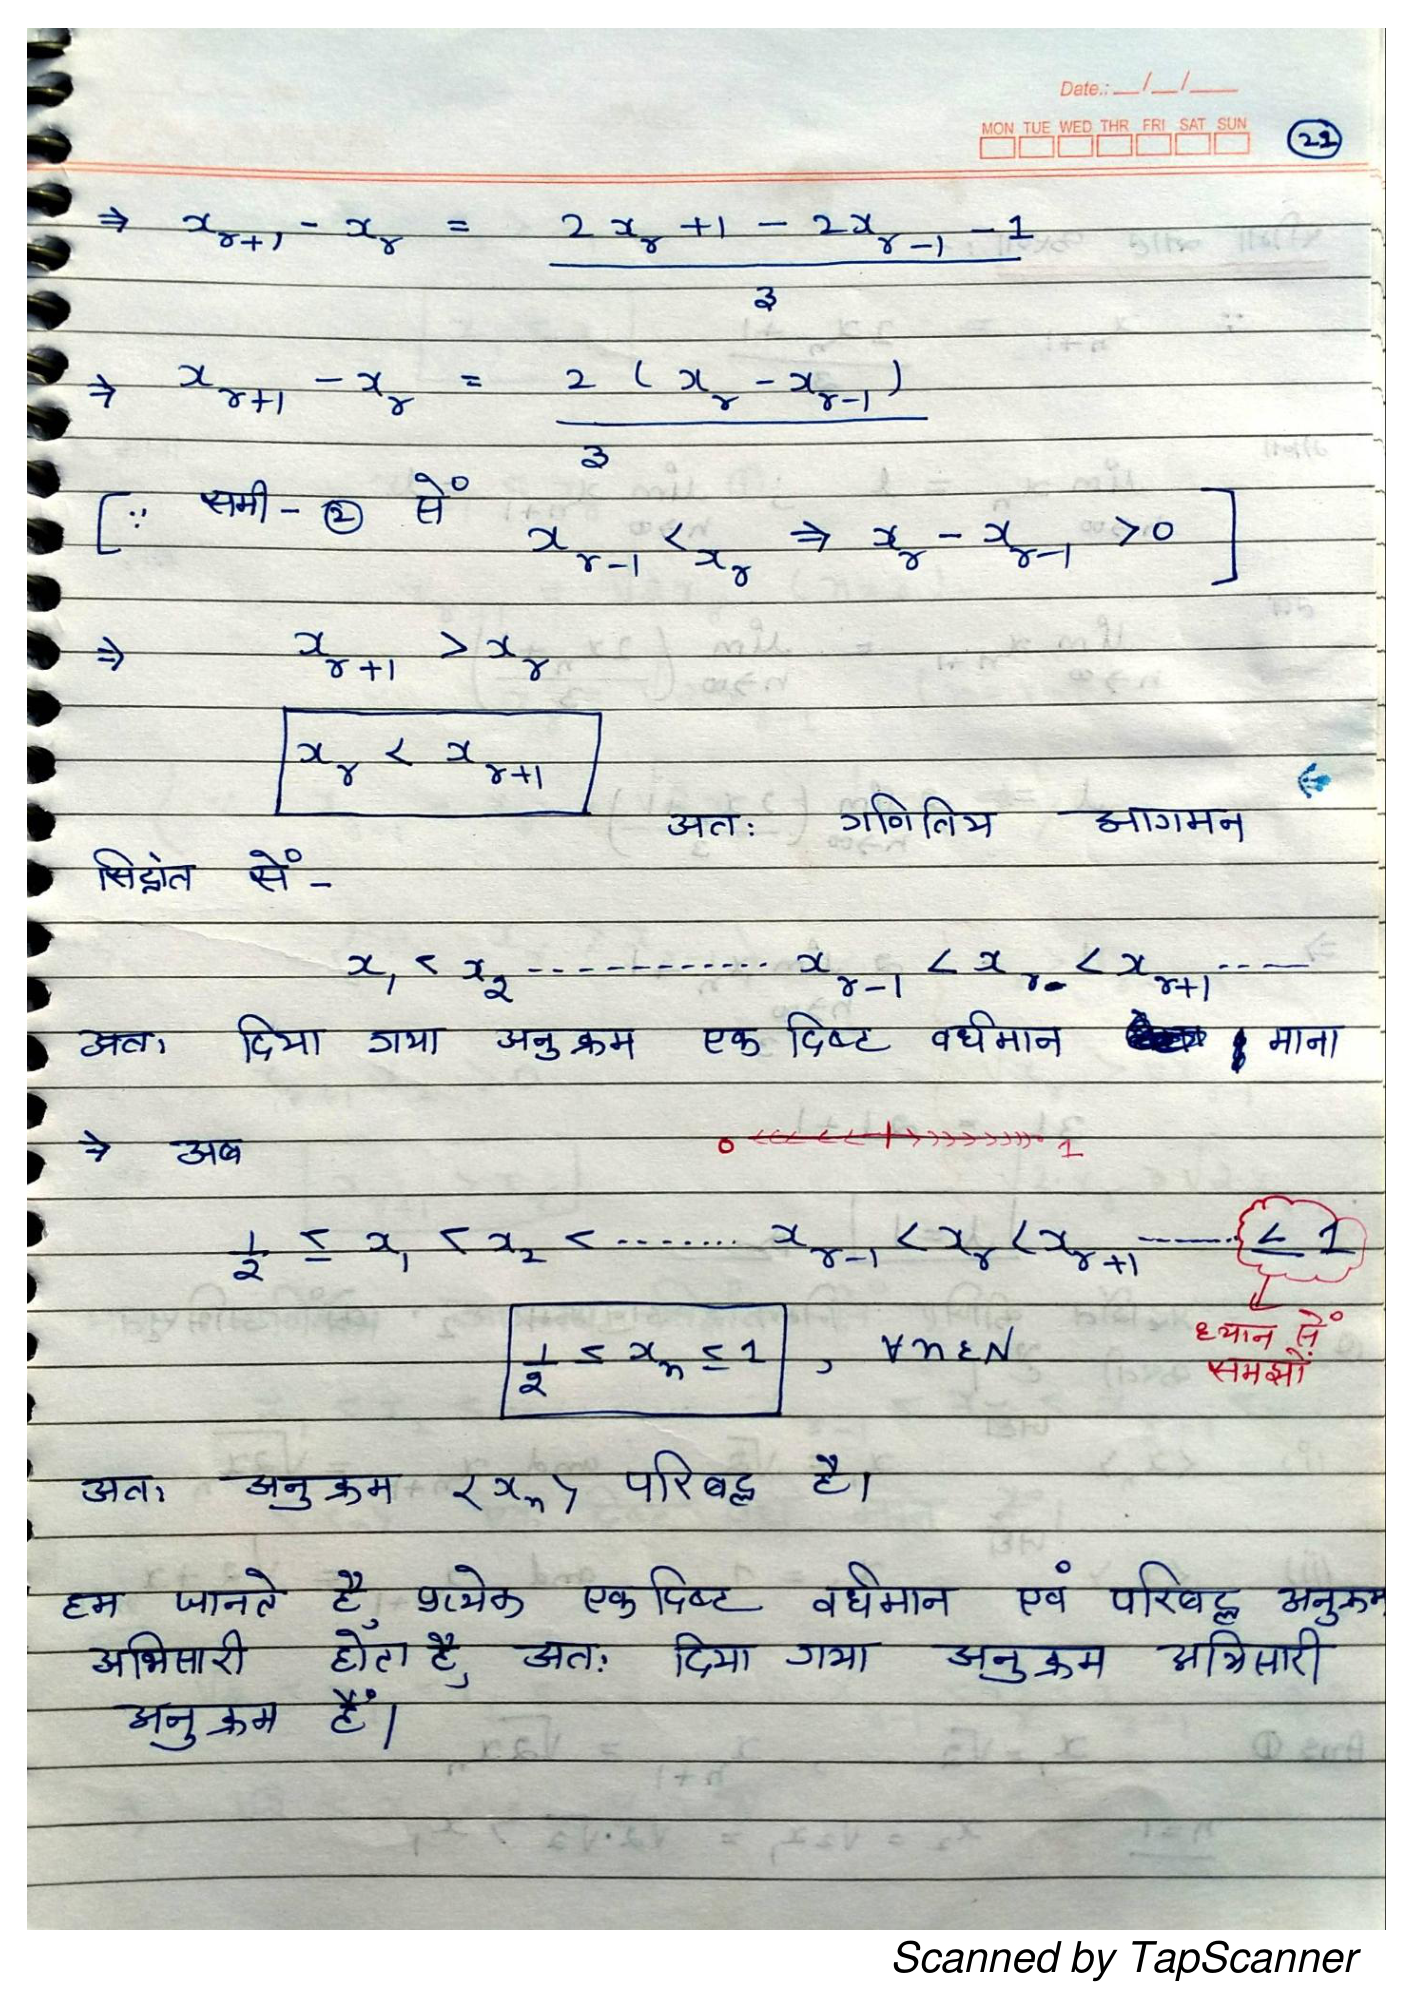 Date.: __/__/____
MON TUE WED THR FRI SAT SUN
22
⇒ x_{r+1} - x_r = (2x_r + 1 - 2x_{r-1} - 1) / 3
⇒ x_{r+1} - x_r = 2(x_r - x_{r-1}) / 3
[∵ समी- ② सें x_{r-1} < x_r ⇒ x_r - x_{r-1} > 0]
⇒ x_{r+1} > x_r
x_r < x_{r+1}
अतः गणितिय आगमन
सिद्धांत सें -
x_1 < x_2 ------------ x_{r-1} < x_r < x_{r+1} -----
अतः दिया गया अनुक्रम एक दिष्ट वर्धमान माना
⇒ अब
0 1
1/2 ≤ x_1 < x_2 < ........ x_{r-1} < x_r < x_{r+1} ------ ≤ 1
ध्यान सें
समझों
1/2 ≤ x_n ≤ 1 , ∀ n ∈ N
अतः अनुक्रम <x_n> परिबद्ध है।
हम जानते है, प्रत्येक एक दिष्ट वर्धमान एवं परिबद्ध अनुक्रम
अभिसारी होता है, अतः दिया गया अनुक्रम अभिसारी
अनुक्रम हैं।
Scanned by TapScanner